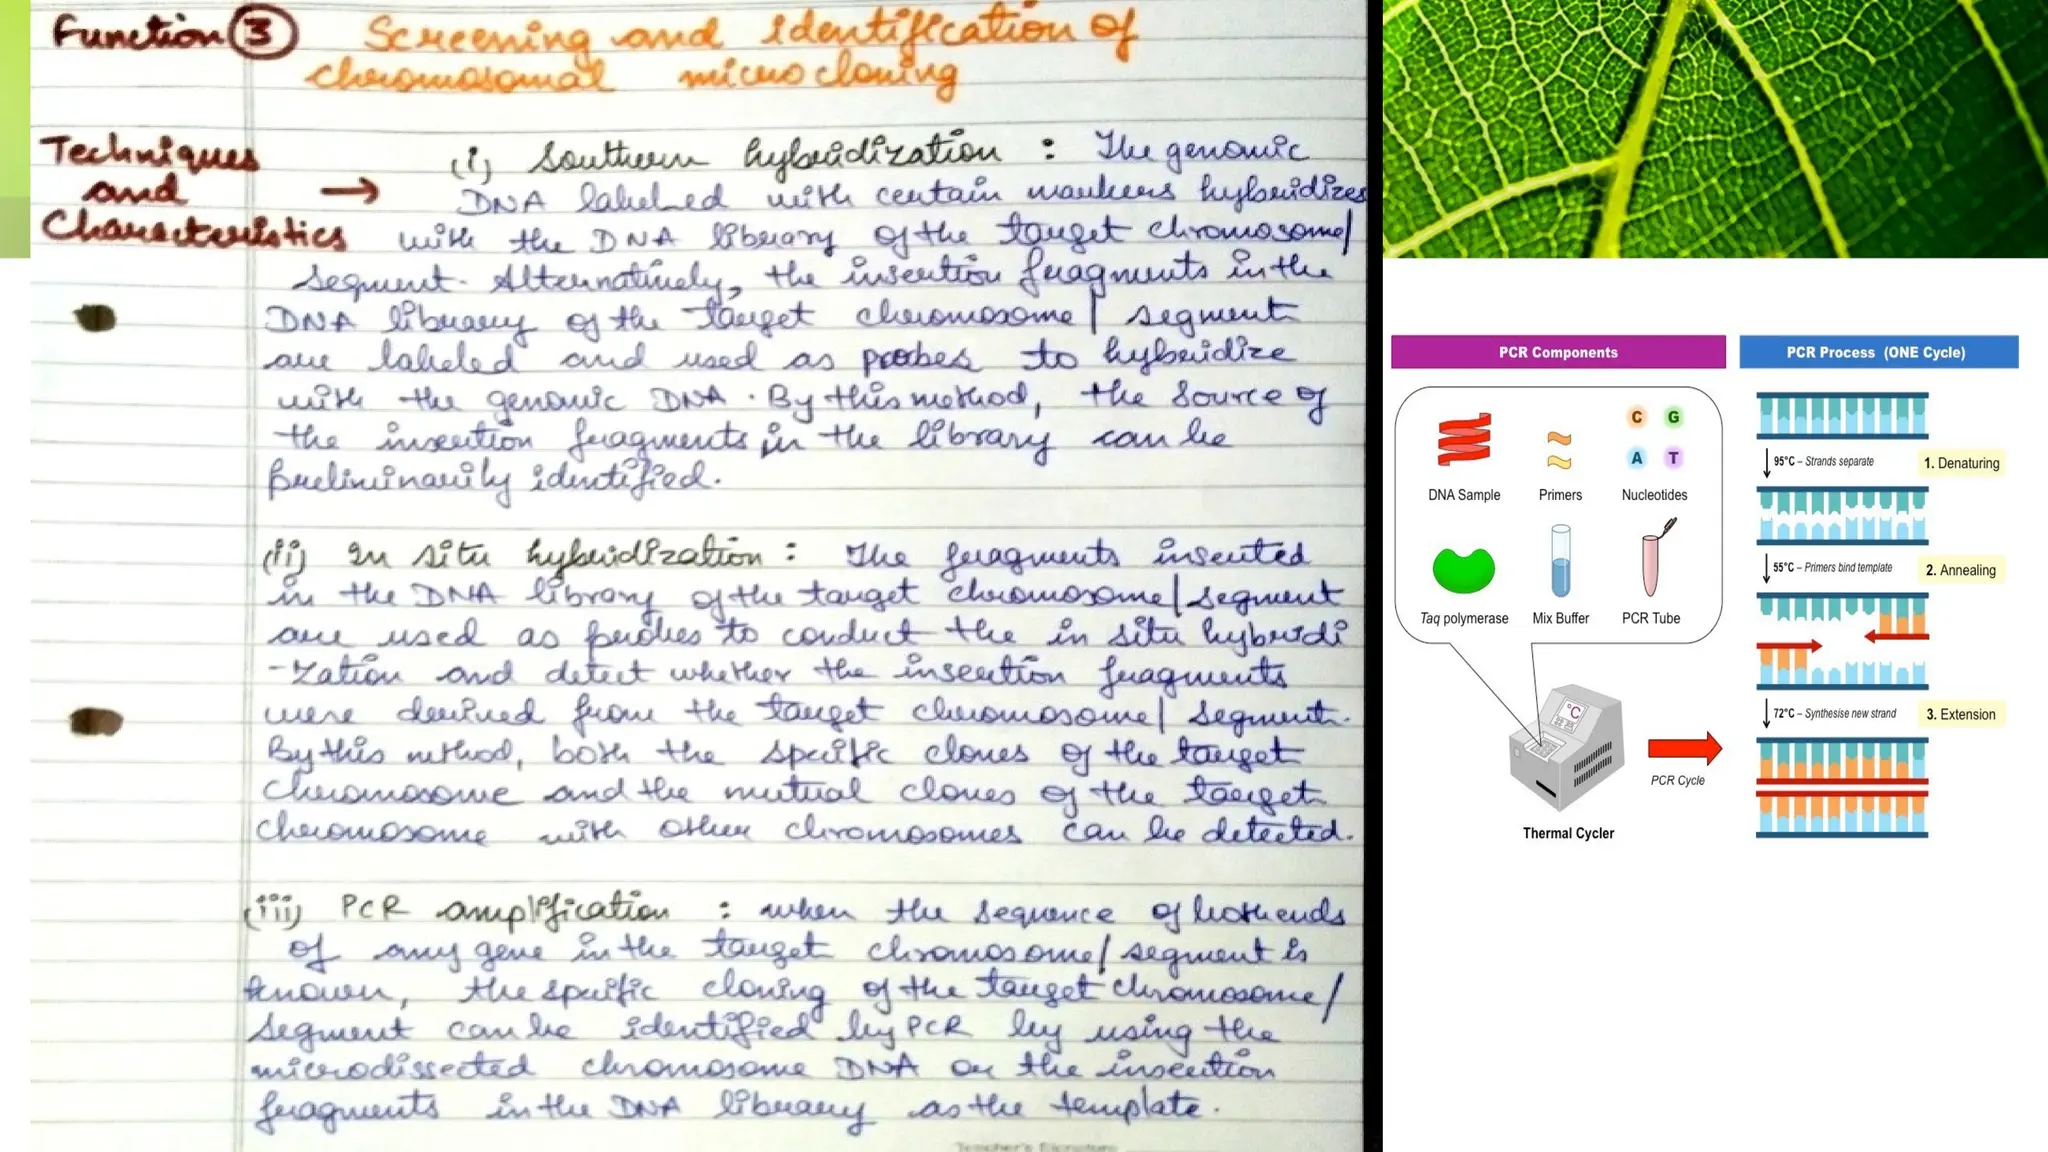 Function 3 Screening and identification of
chromosomal microcloning
Techniques
and
Characteristics
→ (i) Southern hybridization : The genomic
DNA labelled with certain markers hybridizes
with the DNA library of the target chromosome/
segment. Alternatively, the insertion fragments in the
DNA library of the target chromosome/ segment
are labeled and used as probes to hybridize
with the genomic DNA. By this method, the source of
the insertion fragments in the library can be
preliminarily identified.
(ii) In situ hybridization : The fragments inserted
in the DNA library of the target chromosome/segment
are used as probes to conduct the in situ hybridi
-zation and detect whether the insertion fragments
were derived from the target chromosome/ segment.
By this method, both the specific clones of the target
chromosome and the mutual clones of the target
chromosome with other chromosomes can be detected.
(iii) PCR amplification : when the sequence of both ends
of any gene in the target chromosome/segment is
known, the specific cloning of the target chromosome/
segment can be identified by PCR by using the
microdissected chromosome DNA or the insertion
fragments in the DNA library as the template.
Teacher's Signature
PCR Components
C G
A T
DNA Sample Primers Nucleotides
Taq polymerase Mix Buffer PCR Tube
°C
PCR Cycle
Thermal Cycler
PCR Process (ONE Cycle)
95°C – Strands separate 1. Denaturing
55°C – Primers bind template 2. Annealing
72°C – Synthesise new strand 3. Extension